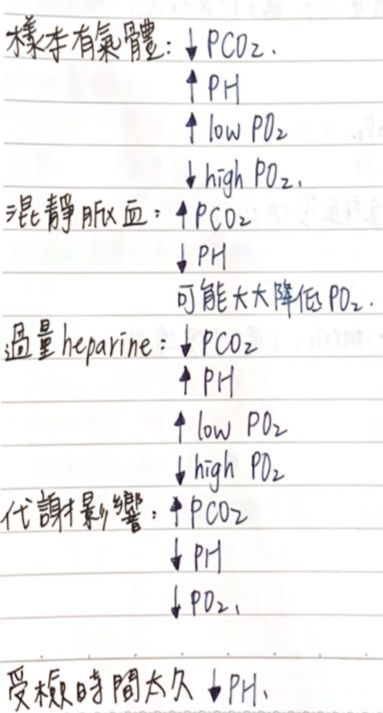 樣本有氣體：↓PCO₂.
↑PH
↑low PO₂
↓high PO₂.
混靜脈血：↑PCO₂
↓PH
可能大大降低PO₂.
過量heparine：↓PCO₂
↑PH
↑low PO₂
↓high PO₂
代謝影響：↑PCO₂
↓PH
↓PO₂.
受檢時間太久 ↓PH.